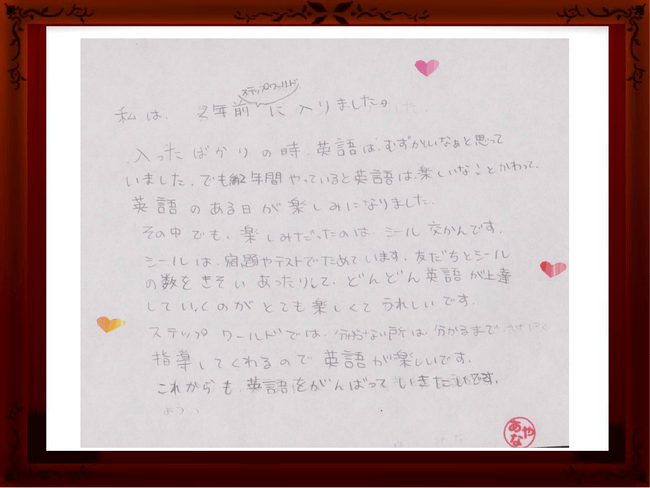 ステップワールド
私は、2年前に入りました。
入ったばかりの時、英語は、むずかしいなぁと思って
いました。でも約2年間やっていると英語は、楽しいな!とかわって、
英語のある日が楽しみになりました。
その中でも、楽しみだったのは、シール交かんです。
シールは、宿題やテストでためています。友だちとシール
の数をきそいあったりして、どんどん英語が上達
していくのがとても楽しくてうれしいです。
ステップワールドでは、分からない所は、分かるまで
指導してくれるので英語が楽しいです。
これからも、英語をがんばっていきたいです。
あやな